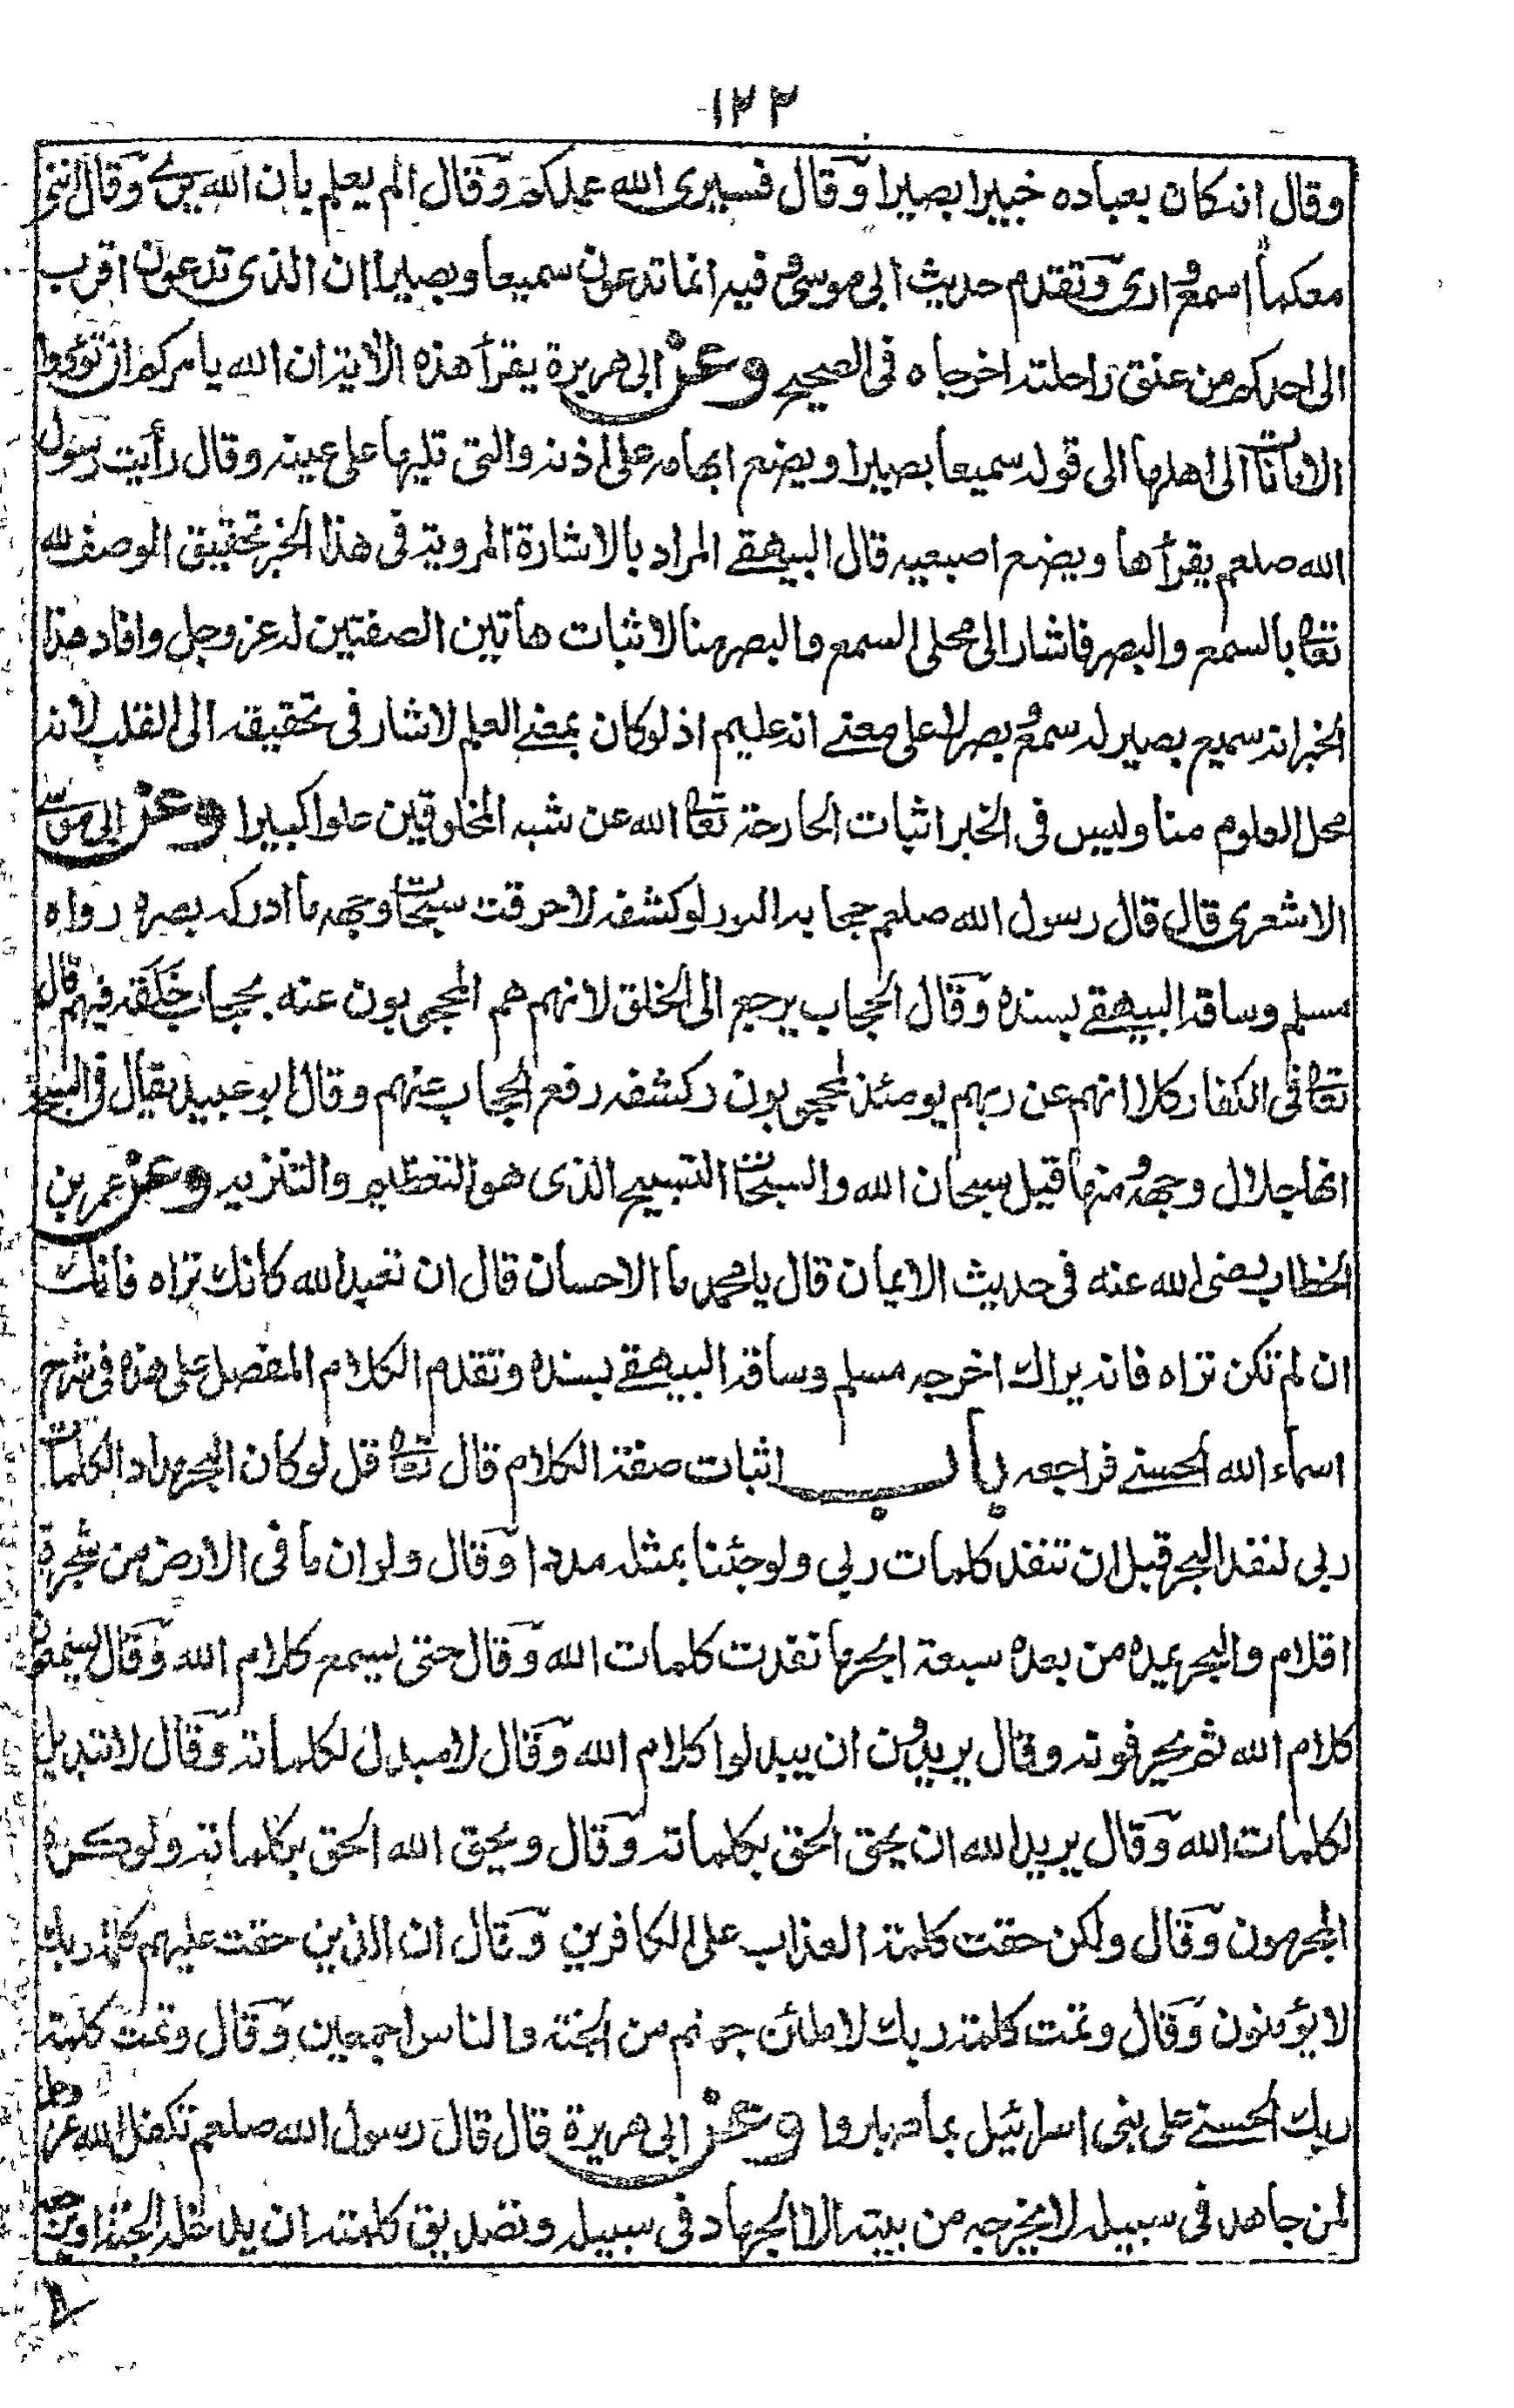 ١٢٣
وقال انه كان بعباده خبيرا بصيرا وقال فسيرى الله عملكم وقال الم يعلم بان الله يرى وقال انني
معكما اسمع وارى وتقدم حديث ابي موسى وفيه انما تدعون سميعا وبصيرا ان الذى تدعون اقرب
الى احدكم من عنق راحلته اخرجاه فى الصحيح وعن ابى هريرة يقرأ هذه الاية ان الله يامركم ان تؤدوا
الامانات الى اهلها الى قوله سميعا بصيرا ويضع ابهامه على اذنه والتى تليها على عينه وقال رأيت رسول
الله صلعم يقرأها ويضع اصبعيه قال البيهقے المراد بالاشارة المروية فى هذا الخبر تحقيق الوصف لله
تعا بالسمع والبصر فاشار الى محلى السمع والبصر منا لاثبات هاتين الصفتين له عز وجل وافاد هذا
الخبر انه سميع بصير له سمع وبصر لا على معنے انه عليم اذ لو كان بمعنے العلم لاشار فى تحقيقه الى القلب لانه
محل العلوم منا وليس فى الخبر اثبات الجارحة تعا الله عن شبه المخلوقين علوا كبيرا وعن ابى موسى
الاشعرى قال قال رسول الله صلعم حجابه النور لو كشفه لاحرقت سبحات وجهه ما ادركه بصره رواه
مسلم وساقه البيهقے بسنده وقال الحجاب يرجع الى الخلق لانهم هم المحجوبون عنه بحجاب خلقه فيهم قال
تعا فى الكفار كلا انهم عن ربهم يومئذ لمحجوبون وكشفه رفع الحجاب عنهم وقال ابو عبيد يقال فى السبحة
انها جلال وجهه ومنها قيل سبحان الله والسبحات التسبيح الذى هو التعظيم والتنزيه وعن عمر بن
الخطاب رضى الله عنه فى حديث الايمان قال يا محمد ما الاحسان قال ان تعبد الله كانك تراه فانك
ان لم تكن تراه فانه يراك اخرجه مسلم وساقه البيهقے بسنده وتقدم الكلام المفصل على هذه فى شرح
اسماء الله الحسنے فراجعه باب اثبات صفة الكلام قال تعا قل لو كان البحر مدادا لكلمات
ربى لنفد البحر قبل ان تنفد كلمات ربى ولو جئنا بمثله مددا وقال ولو ان ما فى الارض من شجرة
اقلام والبحر يمده من بعده سبعة ابحر ما نفدت كلمات الله وقال حتى يسمع كلام الله وقال يسمعون
كلام الله ثم يحرفونه وقال يريدون ان يبدلوا كلام الله وقال لا مبدل لكلماته وقال لا تبديل
لكلمات الله وقال يريد الله ان يحق الحق بكلماته وقال ويحق الله الحق بكلماته ولو كره
المجرمون وقال ولكن حقت كلمة العذاب على الكافرين وقال ان الذين حقت عليهم كلمة ربك
لا يؤمنون وقال وتمت كلمة ربك لاملئن جهنم من الجنة والناس اجمعين وقال وتمت كلمة
ربك الحسنے على بنى اسرائيل بما صبروا وعن ابى هريرة قال قال رسول الله صلعم تكفل الله عز وجل
لمن جاهد فى سبيله لا يخرجه من بيته الا الجهاد فى سبيله وتصديق كلمته ان يدخله الجنة او